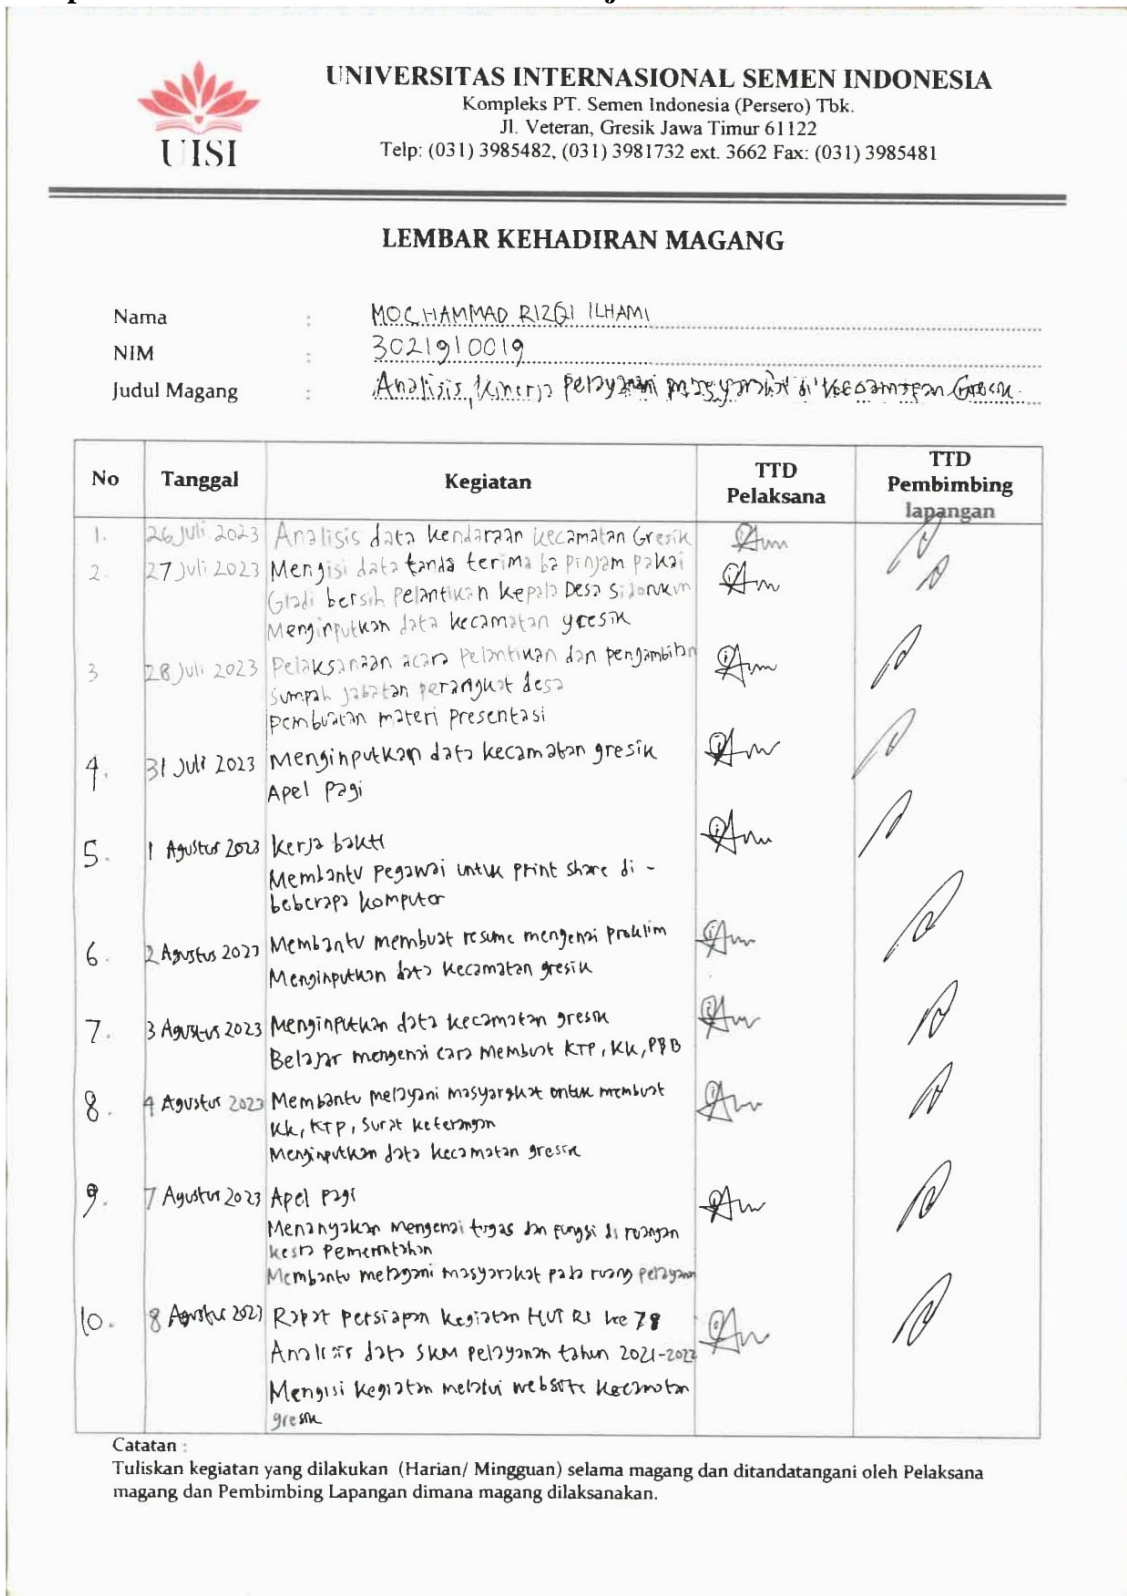 UNIVERSITAS INTERNASIONAL SEMEN INDONESIA
Kompleks PT. Semen Indonesia (Persero) Tbk.
Jl. Veteran, Gresik Jawa Timur 61122
Telp: (031) 3985482, (031) 3981732 ext. 3662 Fax: (031) 3985481
UISI
LEMBAR KEHADIRAN MAGANG
Nama : MOCHAMMAD RIZQI ILHAMI
NIM : 3021910019
Judul Magang : Analisis Kinerja Pelayanan masyarakat di Kecamatan Gresik
No Tanggal Kegiatan TTD Pelaksana TTD Pembimbing lapangan
1. 26 Juli 2023 Analisis data kendaraan kecamatan Gresik
2. 27 Juli 2023 Mengisi data tanda terima ba Pinjam Pakai
Gladi bersih Pelantikan Kepala Desa Sidorukun
Menginputkan data kecamatan gresik
3 28 Juli 2023 Pelaksanaan acara Pelantikan dan pengambilan
Sumpah jabatan perangkat desa
Pembuatan materi Presentasi
4. 31 Juli 2023 Menginputkan data kecamatan gresik
Apel Pagi
5. 1 Agustus 2023 Kerja bakti
Membantu Pegawai untuk print share di -
beberapa komputer
6. 2 Agustus 2023 Membantu membuat resume mengenai proklim
Menginputkan data kecamatan gresik
7. 3 Agustus 2023 Menginputkan data kecamatan gresik
Belajar mengenai cara Membuat KTP, KK, PBB
8. 4 Agustus 2023 Membantu melayani masyarakat untuk membuat
KK, KTP, Surat keterangan
Menginputkan data kecamatan gresik
9. 7 Agustus 2023 Apel Pagi
Menanyakan mengenai tugas dan fungsi di ruangan
kesra Pemerintahan
Membantu melayani masyarakat pada ruang pelayanan
10. 8 Agustus 2023 Rapat Persiapan kegiatan HUT RI ke 78
Analisis data SKM Pelayanan tahun 2021-2022
Mengisi kegiatan melalui website kecamatan
gresik
Catatan :
Tuliskan kegiatan yang dilakukan (Harian/ Mingguan) selama magang dan ditandatangani oleh Pelaksana
magang dan Pembimbing Lapangan dimana magang dilaksanakan.